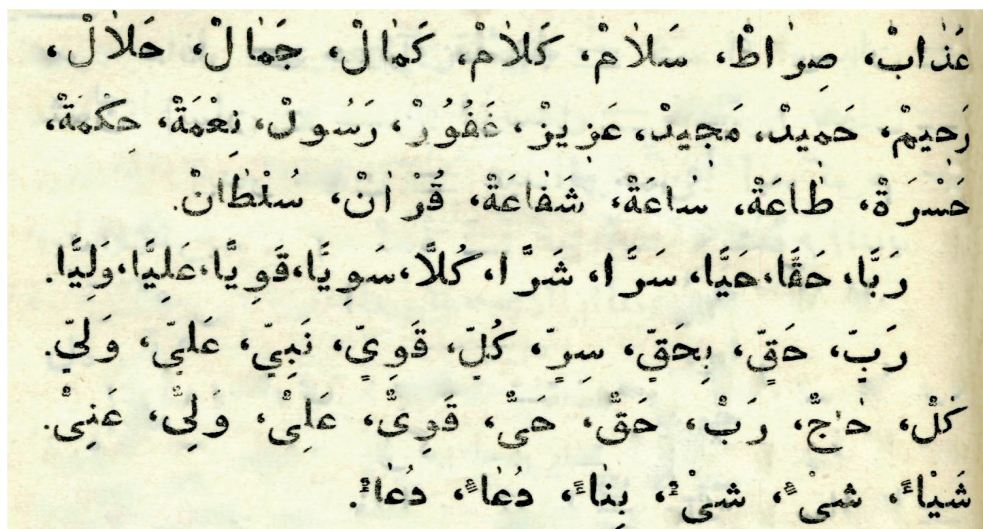 عَذٰابٌ، صِرٰاطٌ، سَلٰامٌ، كَلٰامٌ، كَمٰالٌ، جَمٰالٌ، حَلٰالٌ،
رَحيمٌ، حَميدٌ، مَجيدٌ، عَزيزٌ، غَفُورٌ، رَسُولٌ، نِعْمَةٌ، حِكْمَةٌ،
حَسْرَةٌ، طٰاعَةٌ، سٰاعَةٌ، شَفٰاعَةٌ، قُرْاٰنٌ، سُلْطٰانٌ.
رَبًّا، حَقًّا، حَيًّا، سَرًّا، شَرًّا، كُلًّا، سَوِيًّا، قَوِيًّا، عَلِيًّا، وَلِيًّا.
رَبٍّ، حَقٍّ، بِحَقٍّ، سِرٍّ، كُلٍّ، قَوِيٍّ، نَبِيٍّ، عَلِيٍّ، وَلِيٍّ.
كُلٌّ، حٰاجٌّ، رَبٌّ، حَقٌّ، حَىٌّ، قَوِىٌّ، عَلِىٌّ، وَلِىٌّ، غَنِىٌّ.
شَيْاءً، شَىْءٍ، شَىْءٌ، بِنٰاءً، دُعٰاءً، دُعٰاءٌ.